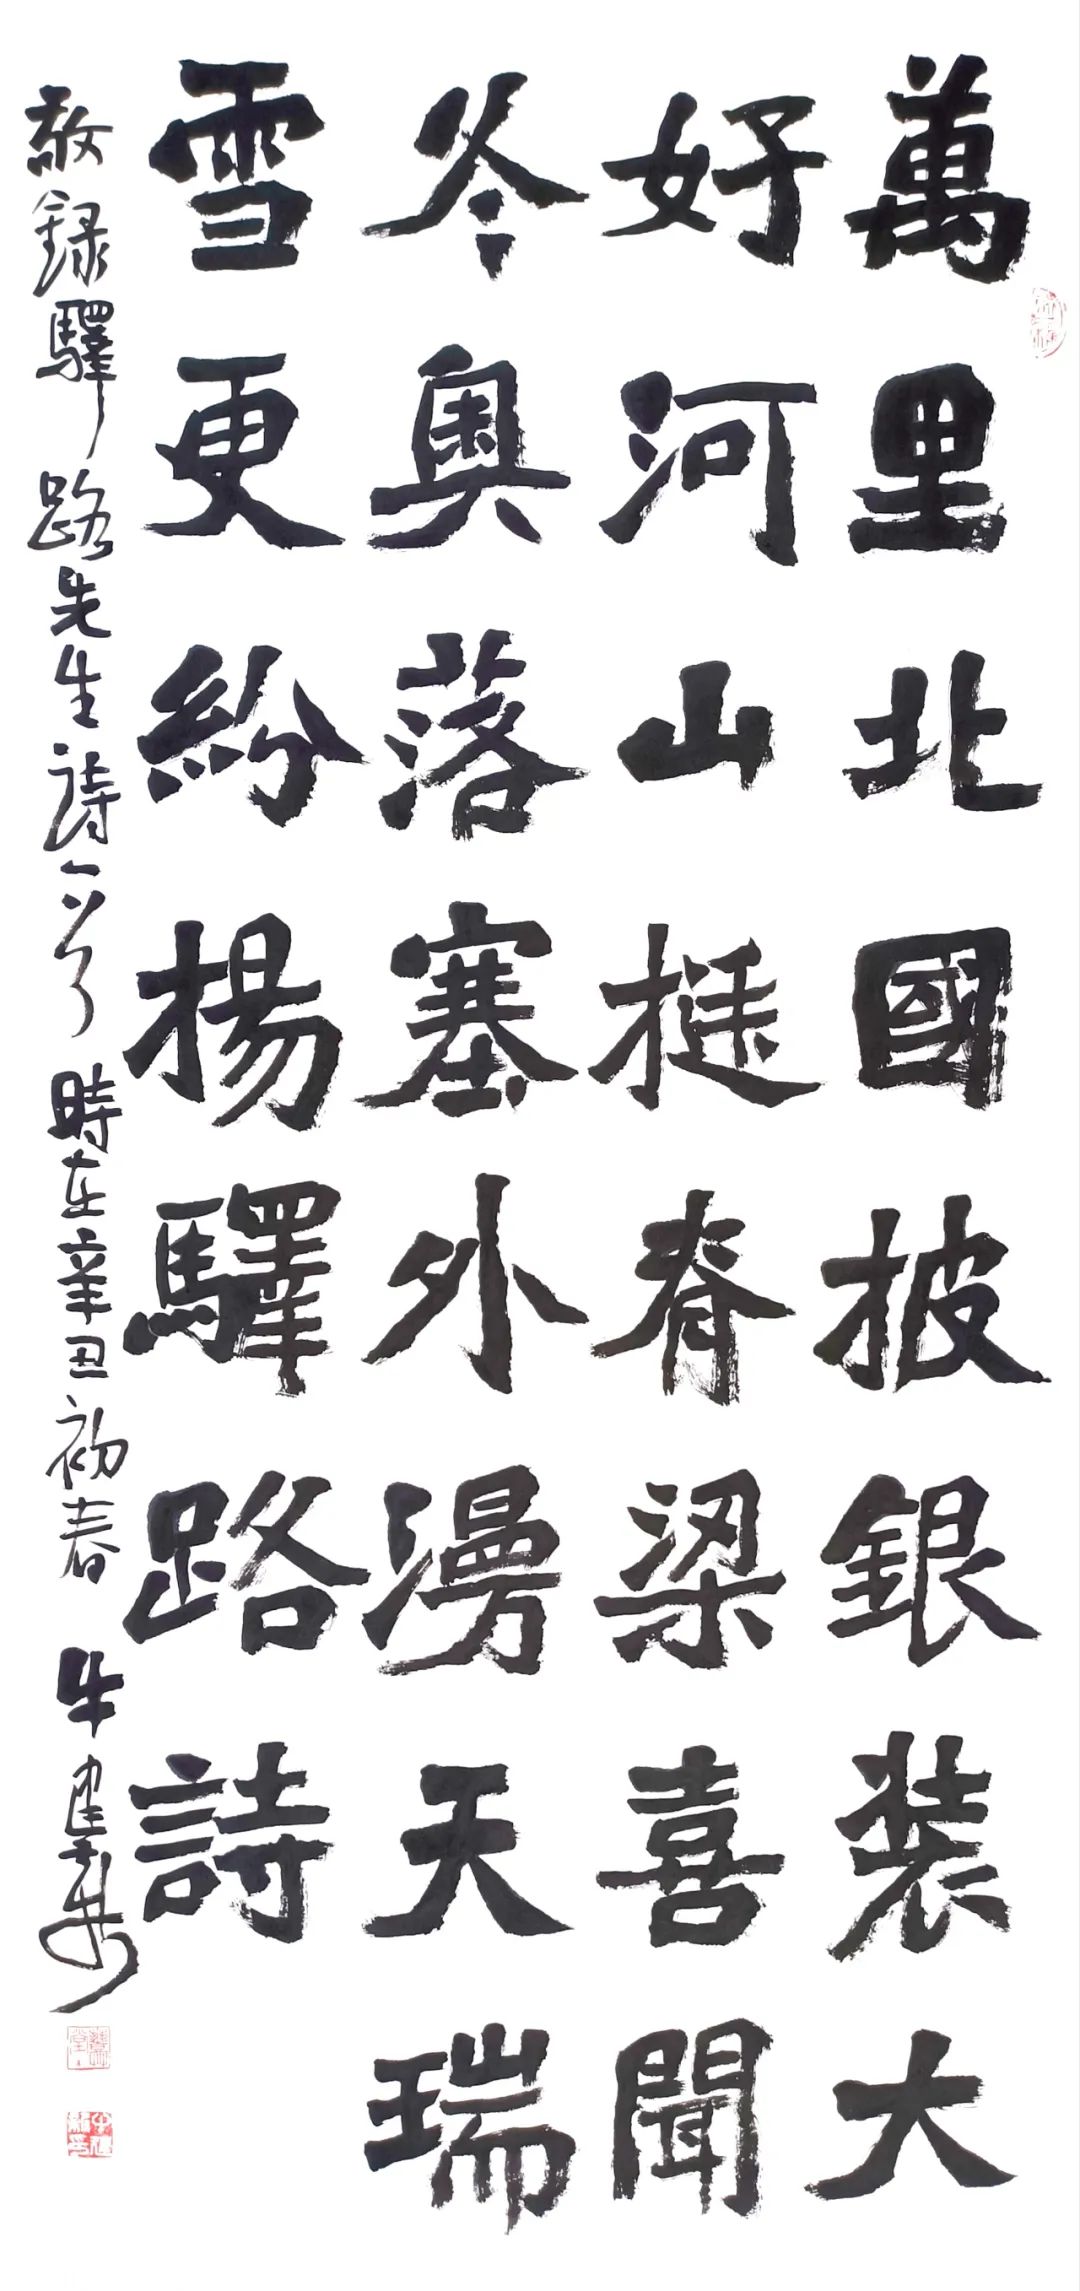 萬里北國披銀装大
好河山挺脊梁喜聞
冬奥落塞外漫天瑞
雪更紛揚驛路詩
敬録驛路先生詩一首 時在辛丑初春 牛建